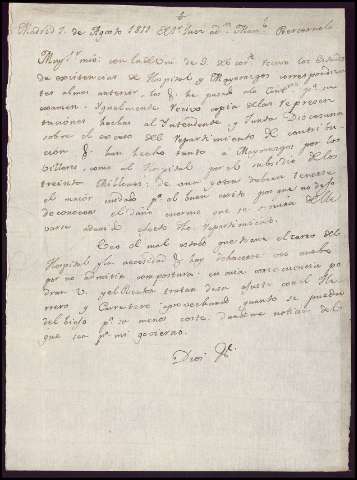 Madrid 7. de Agosto 1811 Dn. Juan Manl.
Muy Sr. mio: con la de V. de 2. del corte. recivo los Estados
de existencias de Hospital y Mayorazgo correspondien
tes al mes anterior, los q. he pasado a la Contra. pa. su
examen. Igualmente recivo copia de las represen
taciones hechas al Yntendente y Junta
sobre el exceso del repartimiento de contribu
ción q. han hecho tanto a Mayorazgo por los
como al Hospital por el subsidio de los
treinta Millones: de una y otra deben tenerse
el mayor cuidado pa. el buen exito, por que no dejo
de conocer el daño enorme que se
varse a devido efecto tal repartimiento.
Veo el mal estado que tiene el carro del
Hospital y la necesidad q. hay de hacerse uno nuebo
por no admitir compostura: en esta consecuencia po
dran V. y el Rector tratar de su ajuste con el He
rrero y Carretero aprovechando quanto se pueda
del biejo pa. su menos coste, dandome noticia del
que sea pa. mi govierno.
Dios Ge.